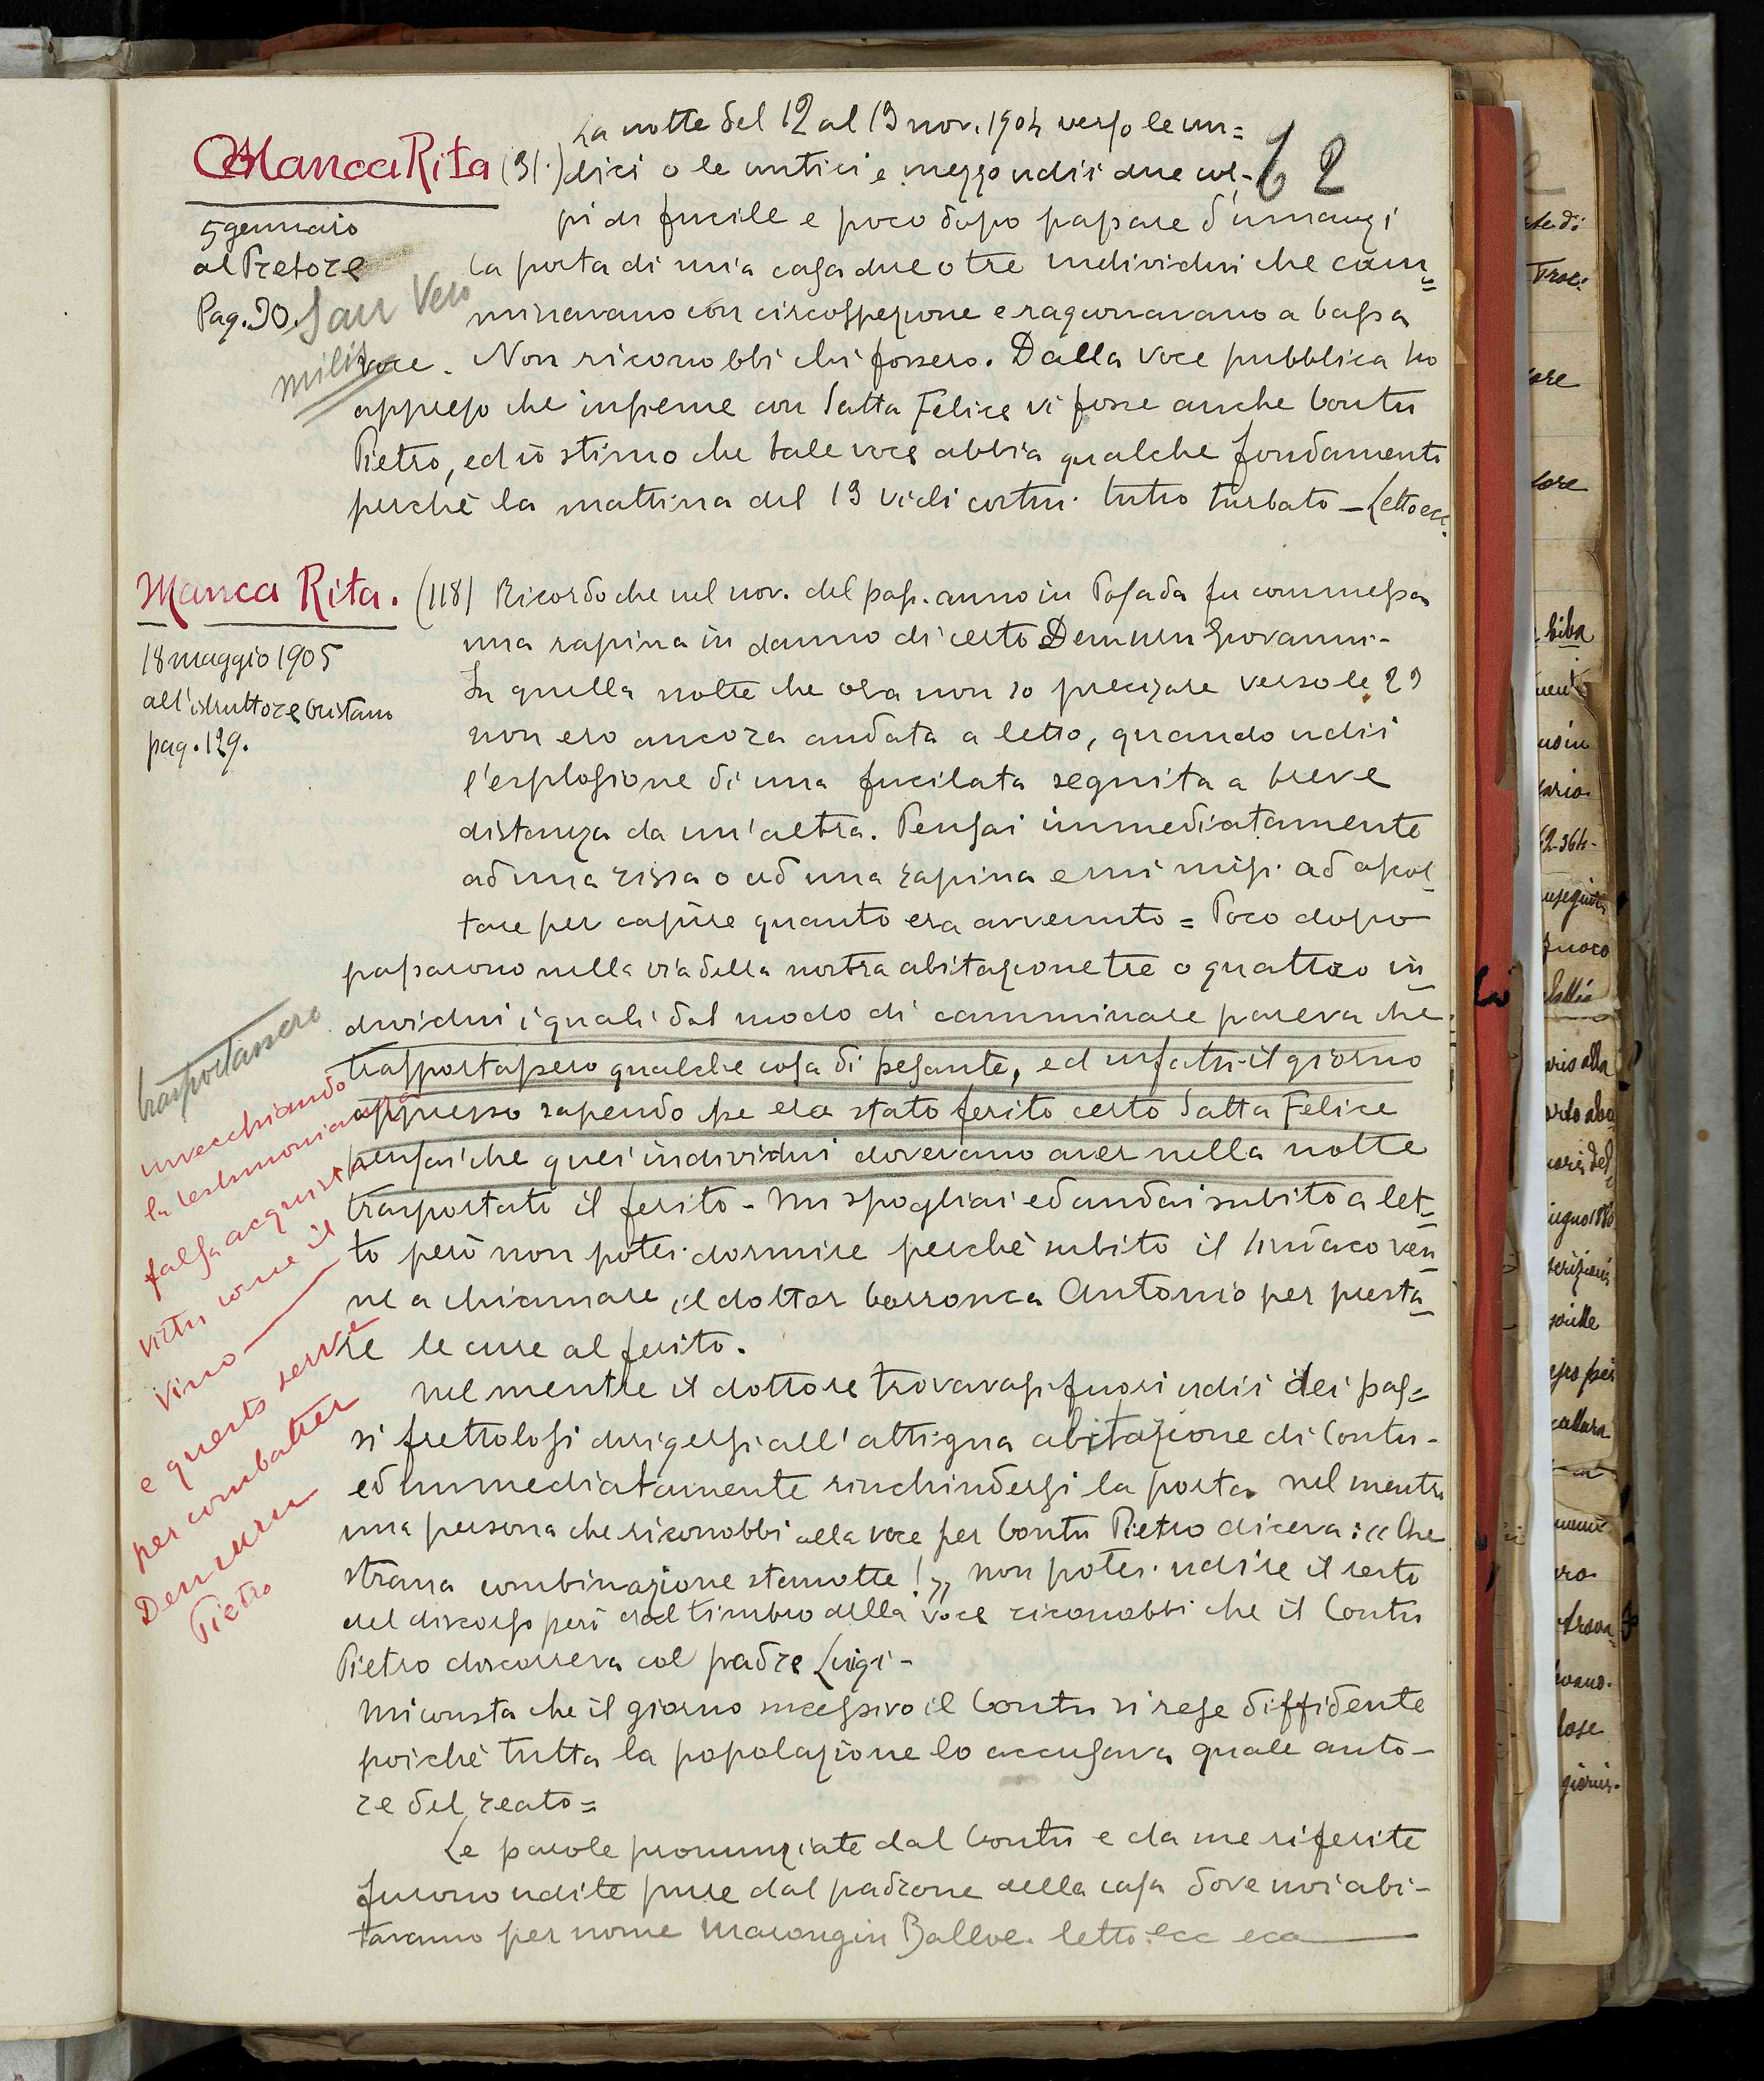 62
Manca Rita (31.)
5 gennaio
al Pretore
Pag. 30.
La notte del 12 al 13 nov. 1904 verso le un=
dici o le undici e mezzo udii due col-
pi di fucile e poco dopo passare d'innanzi
la porta di mia casa due o tre individui che cam=
minavano con circospezione e ragionavano a bassa
voce. Non riconobbi chi fossero. Dalla voce pubblica ho
appreso che insieme con Satta Felice vi fosse anche Contu
Pietro, ed io stimo che tale voce abbia qualche fondamento
perchè la mattina del 13 vidi costui tutto turbato - Letto ecc.
Manca Rita. (118)
18 maggio 1905
all'istruttore Oristano
pag. 129.
Ricordo che nel nov. del pass. anno in Posada fu commessa
una rapina in danno di certo Demuru Giovanni-
In quella notte che ora non so precisare verso le 23
non ero ancora andata a letto, quando udii
l'esplosione di una fucilata seguita a breve
distanza da un'altra. Pensai immediatamente
ad una rissa o ad una rapina e mi misi ad ascol-
tare per capire quanto era avvenuto = Poco dopo
passarono nella via della nostra abitazione tre o quattro in
dividui i quali dal modo di camminare pareva che
trasportassero qualche cosa di pesante, ed infatti il giorno
appresso sapendo che era stato ferito certo Satta Felice
pensai che quei individui dovevano aver nella notte
trasportato il ferito - Mi spogliai ed andai subito a let-
to però non potei dormire perchè subito il sindaco ven
ne a chiamare il dottor Corronca Antonio per presta-
re le cure al ferito.
Nel mentre il dottore trovavasi fuori udii dei pas=
si frettolosi dirigersi all'attigua abitazione di Contu-
ed immediatamente rinchiudersi la porta nel mentre
una persona che riconobbi alla voce per Contu Pietro diceva: "Che
strana combinazione stanotte!" non potei udire il resto
del discorso però dal timbro della voce riconobbi che il Contu
Pietro discorreva col padre Luigi-
Mi consta che il giorno successivo il Contu si rese diffidente
poichè tutta la popolazione lo accusava quale auto-
re del reato=
Le parole pronunziate dal Contu e da me riferite
furono udite pure dal padrone della casa dove noi abi-
tavamo per nome Marongiu Balloe. letto ecc ecc
trasportassero
invecchiando
la testimonianza
falsa acquista
virtu come il
vino
e questo serve
per combatter
Demuru
Pietro